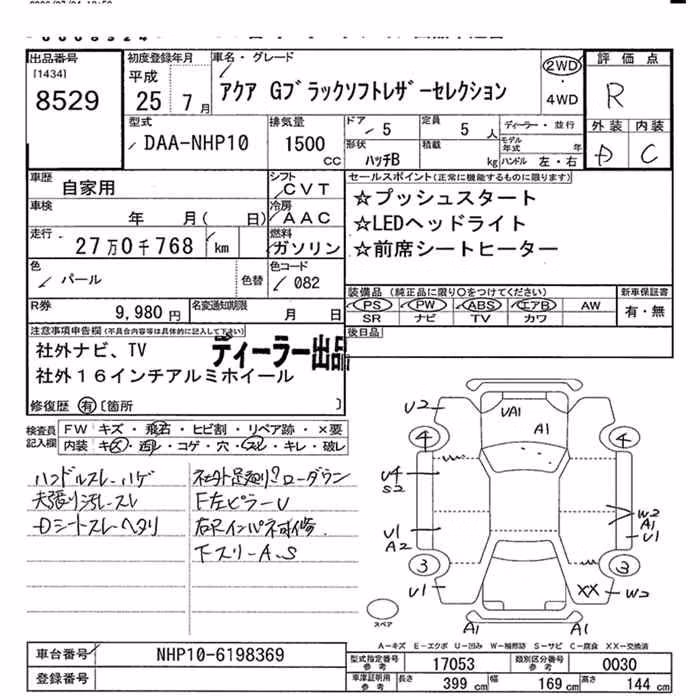 出品番号
[1434]
8529
初度登録年月
平成
25 7月
車名・グレード
アクア Gブラックソフトレザーセレクション
2WD
・
4WD
評価点
R
外装 内装
D C
型式
DAA-NHP10
排気量
1500
CC
ドア
5
定員
5 人
ディーラー・並行
モデル年式 年
形状
ハッチB
積載
kg
ハンドル 左・右
車歴
自家用
シフト
CVT
セールスポイント(正常に機能するものに限ります)
☆プッシュスタート
☆LEDヘッドライト
☆前席シートヒーター
車検
年 月( 日)
冷房
AAC
走行
27万0千768 km
燃料
ガソリン
色
パール
色替
色コード
082
装備品 (純正品に限り○をつけてください)
PS PW ABS エアB AW
SR ナビ TV カワ
新車保証書
有・無
R券
9,980円
名変通知期限
月 日
後日品
注意事項申告欄(不具合内容等は具体的に記入して下さい)
社外ナビ、TV
ディーラー出品
社外16インチアルミホイール
修復歴 有 〔箇所 〕
検査員記入欄
FW キズ・飛石・ヒビ割・リペア跡・×要
内装 キズ・汚レ・コゲ・穴・スレ・キレ・破レ
ハンドルスレ・ハゲ
天張り汚レ・スレ
Dシートスレ・ヘタリ
社外足廻り?ローダウン
F左ピラーU
右Rインパネ補修
下スリーA.S
U2
UA1
A1
4
4
U4
S2
U1
A2
W2
A1
U1
3
3
U1
XX
W2
A1
A1
スペア
A-キズ E-エクボ U-凹み W-補修跡 S-サビ C-腐食 XX-交換済
車台番号
NHP10-6198369
登録番号
型式指定番号
参考
17053
類別区分番号
参考
0030
車庫証明用
参考
長さ 399 cm
幅 169 cm
高さ 144 cm